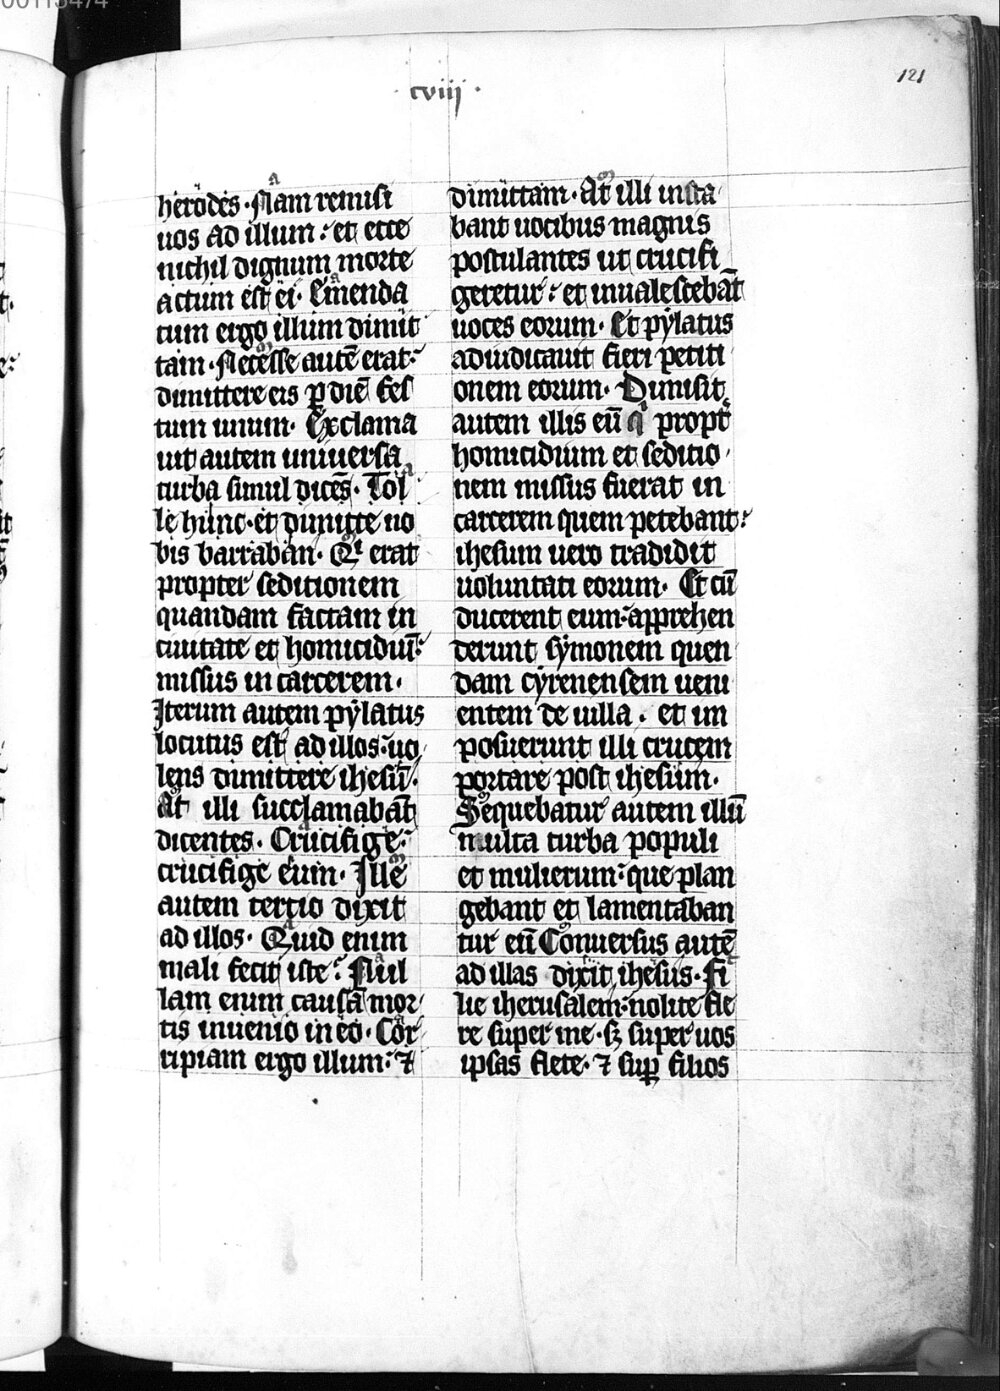 00113474
· cviij ·
121
herodes · Nam remisi
uos ad illum : et ecce
nichil dignum morte
actum est ei · Emenda
tum ergo illum dimit
tam · Necesse autē erat :
dimittere eis ꝑ diē fes
tum unum · Exclama
uit autem uniuersa
turba simul dicēs · Tol
le hunc · et dimitte no
bis barraban · Qͥ erat
propter seditionem
quandam factam in
ciuitate et homicidiū :
missus in carcerem ·
Iterum autem pylatus
locutus est ad illos : uo
lens dimittere ihesū ·
At illi succlamabāt
dicentes · Crucifige :
crucifige eum · Ille
autem tercio dixit
ad illos · Quid enim
mali fecit iste : Nul
lam enim causā mor
tis inuenio in eo · Cor
ripiam ergo illum : ⁊
dimittam · At illi insta
bant uocibus magnis
postulantes ut crucifi
geretur : et inualescebāt
uoces eorum · Et pylatus
adiudicauit fieri petiti
onem eorum · Dimisit
autem illis eū q propt̄
homicidium et seditio
nem missus fuerat in
carcerem quem petebant :
ihesum uero tradidit
uoluntati eorum · Et cū
ducerent eum : apprehen
derunt symonem quen
dam cyrenensem ueni
entem de uilla · et im
posuerunt illi crucem
portare post ihesum ·
Sequebatur autem illū
multa turba populi
et mulierum : que plan
gebant et lamentaban
tur eū Conuersus autē
ad illas dixit ihesus · Fi
lie iherusalem : nolite fle
re super me · sꝫ super uos
ipsas flete · ⁊ suꝑ filios